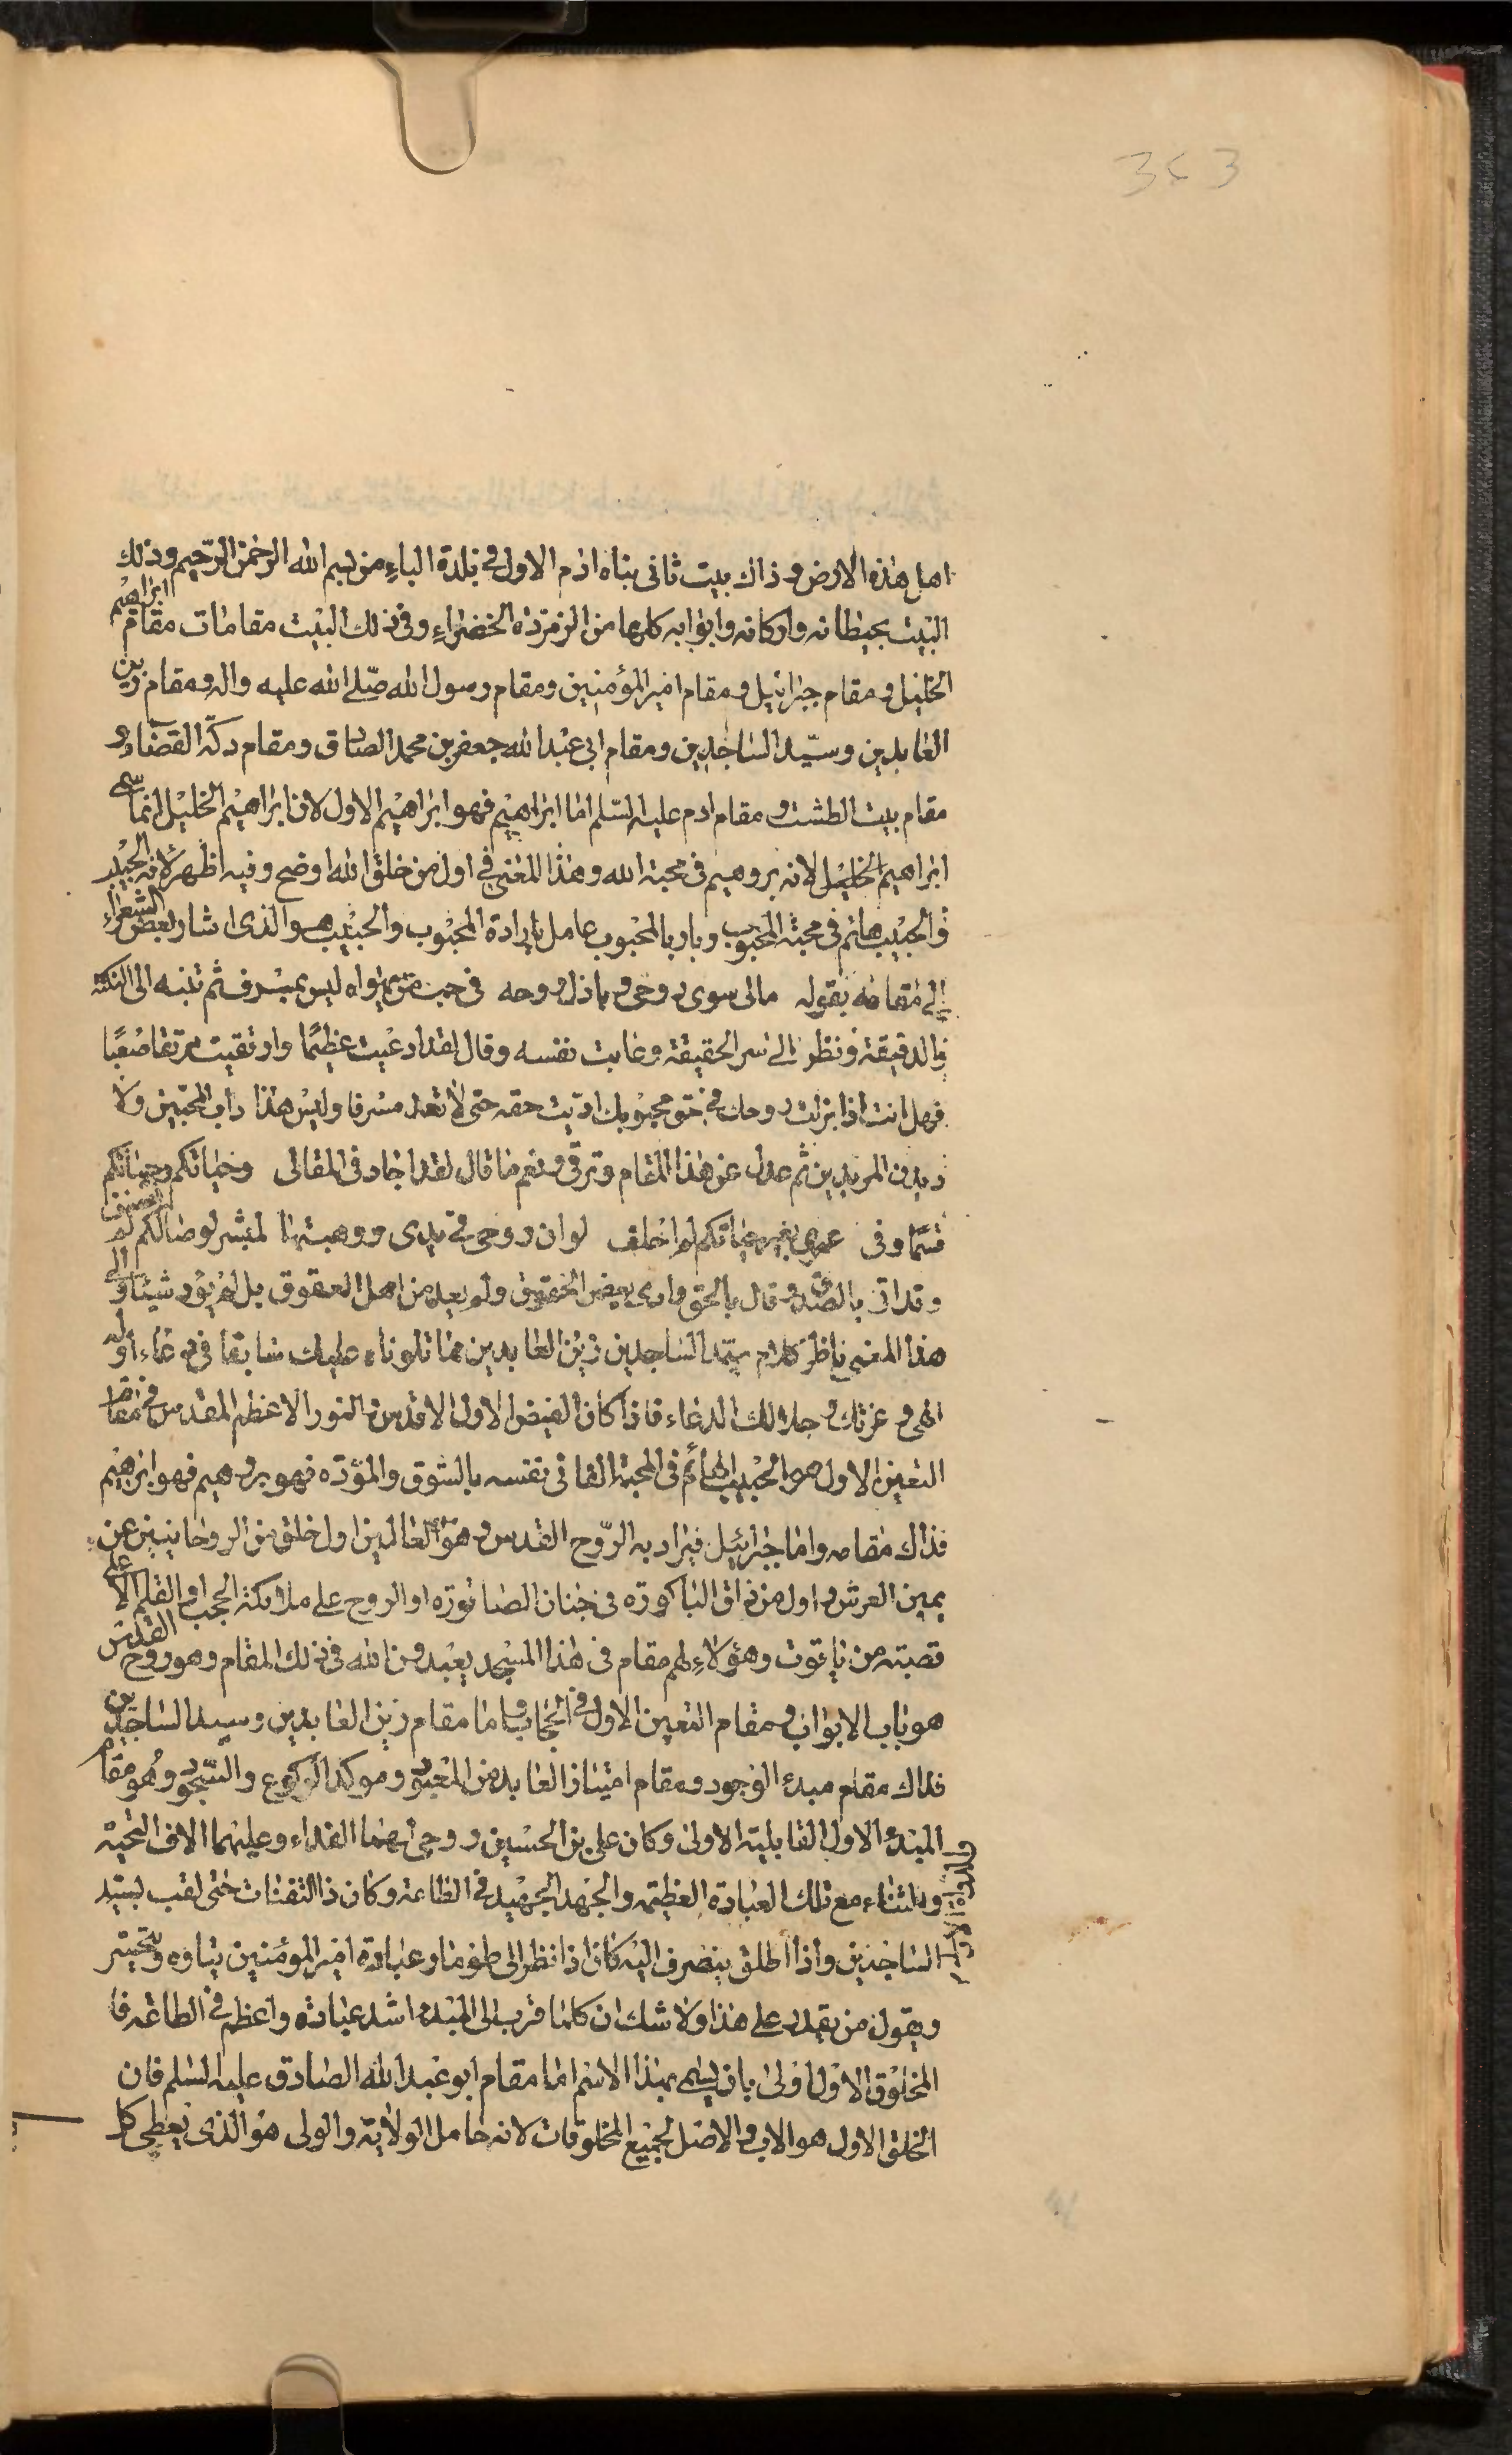 343
اهل هذه الارض و ذاك بيت ثانى بناه ادم الاول فى بلدة الباء من بسم الله الرحمن الرّحيم وذلك
البيت بحيطانه واركانه وابوابه كلها من الزمردة الخضراء وفى ذلك البيت مقامات مقام ابراهيم
الخليل و مقام جبرائيل و مقام امير المؤمنين ومقام رسول الله صلّى الله عليه واله و مقام زين
العابدين وسيّد الساجدين ومقام ابى عبد الله جعفر بن محمد الصادق ومقام دكّة القضاء و
مقام بيت الطشت و مقام ادم عليه السّلم اما ابراهيم فهو ابراهيم الاول لان ابراهيم الخليل انما سمى
ابراهيم الخليل لانه بر وهيم فى محبة الله وهذا المعنى فى اول من خلق الله اوضح وفيه اظهر لانه الحبيب
والحبيب هائم فى محبة المحبوب وبار بالمحبوب عامل بارادة المحبوب والحبيب هو الذى اشار بعض الشعراء
الى مقامه بقوله مالى سوى روحى و باذل روحه فى حب من يهواه ليس بمسرف ثم تنبه الى النكتة
الدقيقة و نظر الى سر الحقيقة وعاتب نفسه وقال لقد ادعيت عظيمًا وارتقيت مرتقا صعبًا
فهل انت اذا بزلت روحك فى حق محبوبك اديت حقه حتى لا تعد مسرفا وليس هذا داب المحبين ولا
ديدن المريدين ثم عدل عن هذا المقام وترقى و نعم ما قال لقد اجاد فى المقال وحياتكم وحياتكم
قسمًا وفى عمرى بغير حياتكم لم احلف لو ان روحى فى يدى ووهبتها لمبشر لوصالكم لم انصف
و قد اتى بالصدق و قال بالحق وادى بعض الحقوق ولم يعد من اهل العقوق بل لم يؤد شيئا و الى
هذا المعنى ناظر كلام سيّد الساجدين زين العابدين مما تلوناه عليك سابقا فى دعاء اوله
الهى و عزتك و جلالك الدعاء فاذا كان الفيض الاول الاقدس و النور الاعظم المقدس فى مقام
التعين الاول هو الحبيب الهائم فى المحبة الفانى نفسه بالشوق والمودّة فهو بر و هيم فهو ابراهيم
فذاك مقامه واما جبرائيل فيراد به الرّوح القدس و هو العالمين اول خلق من الروحانيين عن
يمين العرش و اول من ذاق الباكورة فى جنان الصاقورة او الروح على ملائكة الحجب او القلم الاعلى
قصبته من ياقوت وهؤلاء لهم مقام فى هذا المسجد يعبدون الله فى ذلك المقام وهو روح القدس
هو باب الابواب و مقام التعين الاول فى الحجاب واما مقام زين العابدين وسيد الساجدين
فذاك مقام مبدء الوجود و مقام امتياز العابد من المعبود و موكد الركوع والسّجود وهو مقام
المبدء الاول القابلية الاولى وكان على بن الحسين روحى لهما الفداء وعليهما الاف التحية
والثناء مع تلك العبادة العظيمة والجهد الجهيد فى الطاعة وكان ذا الثفنات حتى لقب بسيّد
الساجدين واذا اطلق ينصرف اليه كان اذا نظر الى طومار عبادة امير المؤمنين يتاوه ويتحسّر
ويقول من يقدر على هذا ولا شك ان كلما قرب الى المبدء اشد عبادة واعظم فى الطاعة فا
المخلوق الاول اولى بان يسمى بهذا الاسم اما مقام ابو عبد الله الصادق عليه السّلم فان
الخلق الاول هو الاب و الاصل لجميع المخلوقات لانه حامل الولاية والولى هو الذى يعطى كل